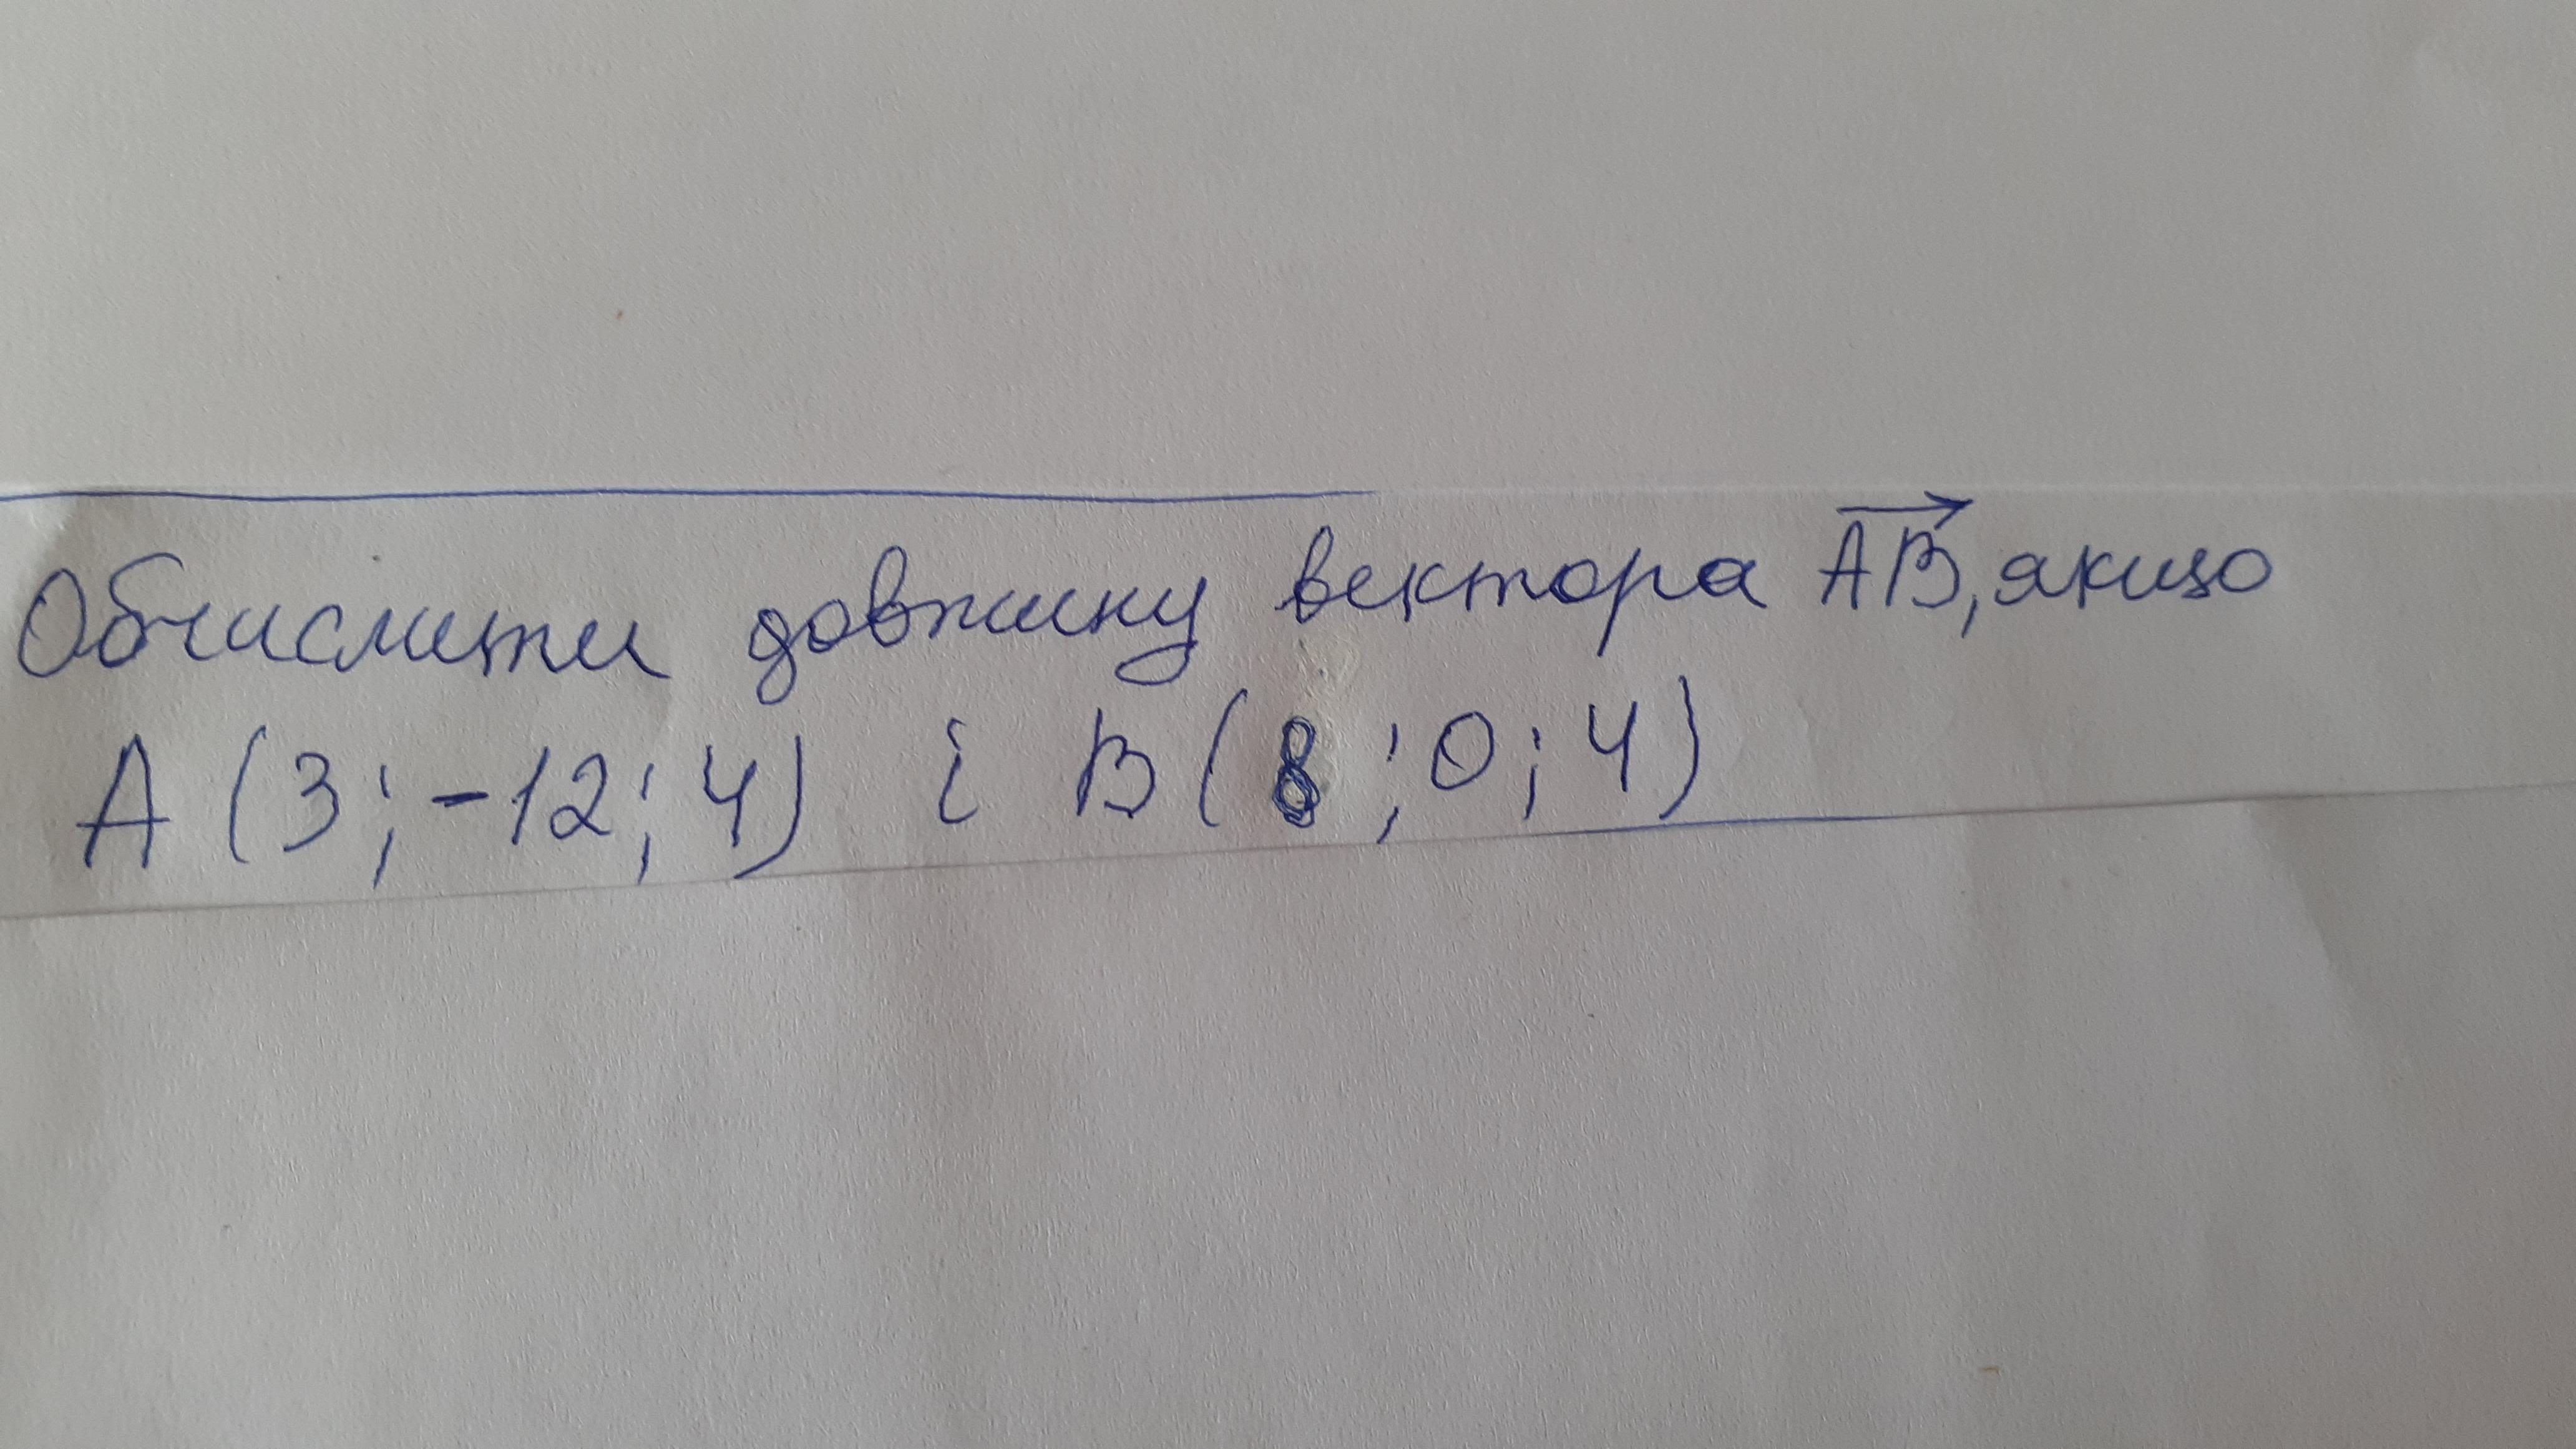 Обчислити довжину вектора AB, якщо
A (3; -12; 4) і B (8; 0; 4)